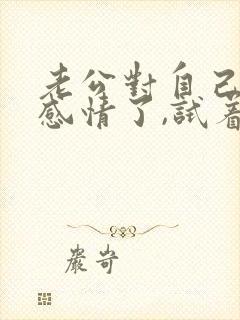 老公對自己
感情了,試着
嚴岢